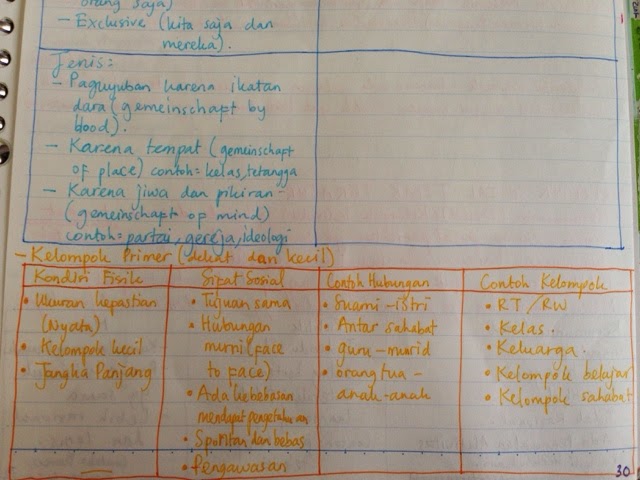 orang saja)
- Exclusive (kita saja dan
mereka).
Jenis:
- Paguyuban karena ikatan
dara (gemeinschapt by
blood).
- Karena tempat (gemeinschapt
of place) contoh= kelas, tetangga
- Karena jiwa dan pikiran=
(gemeinschapt of mind)
contoh= partai, gereja, ideologi
- Kelompok Primer (dekat dan kecil)
Kondisi Fisik
• Ukuran kepastian
(Nyata)
• Kelompok kecil
• Jangka Panjang
Sipat Sosial
• Tujuan sama
• Hubungan
murni (face
to face)
• Ada kebebasan
mendapat pengetahuan
• Spontan dan bebas
• Pengawasan
Contoh Hubungan
• Suami - istri
• Antar sahabat
• guru - murid
• orang tua -
anak-anak
Contoh Kelompok
• RT / RW
• Kelas.
• Keluarga.
• Kelompok belajar
• Kelompok sahabat
30